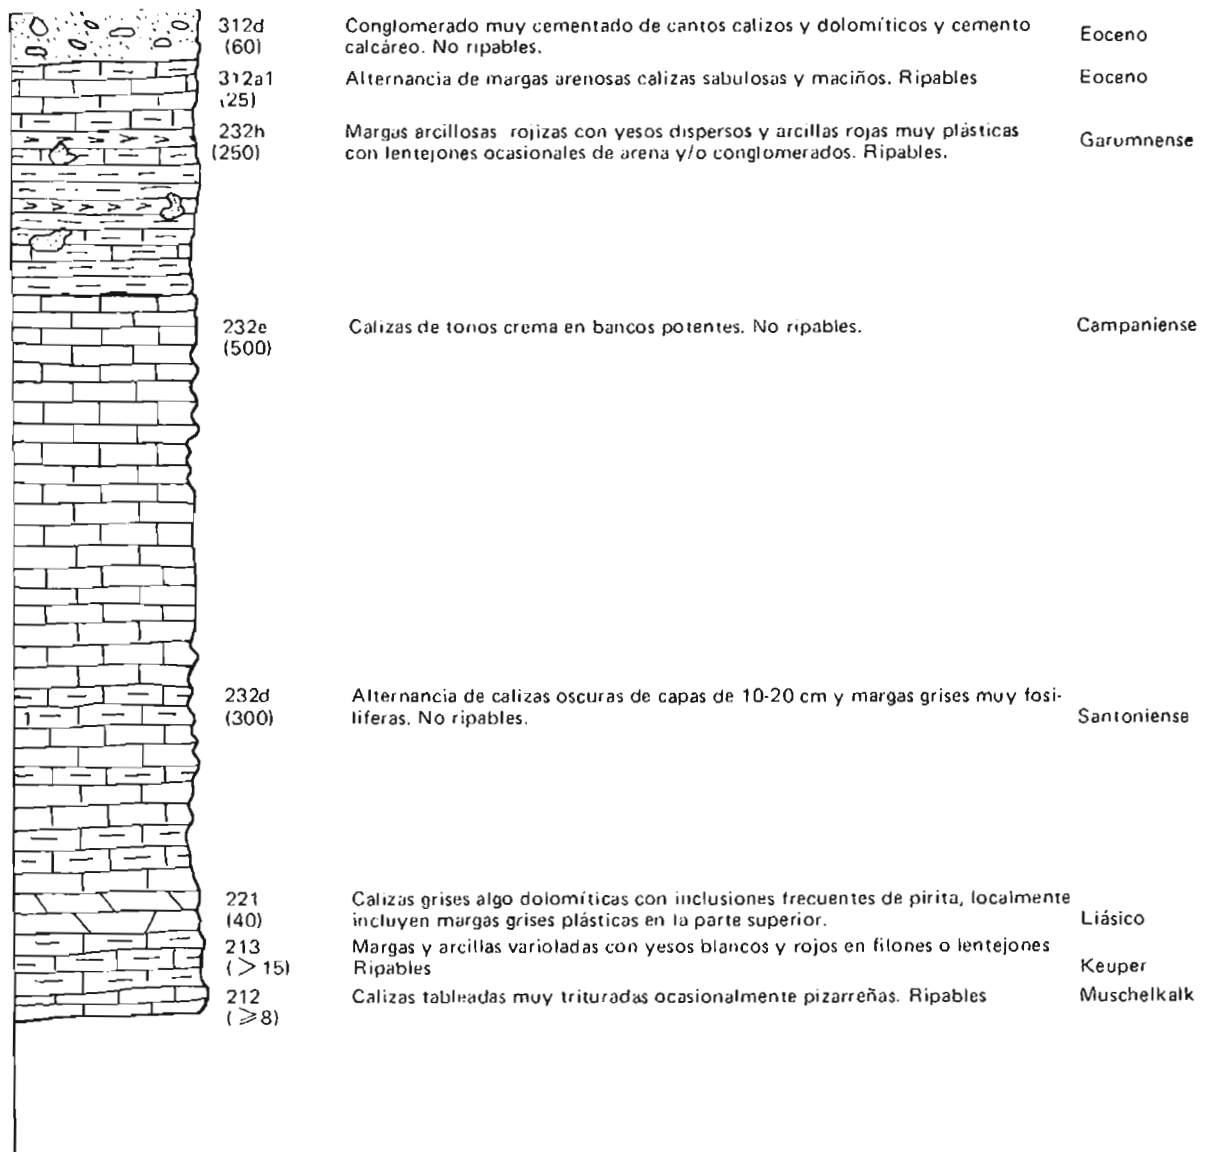 312d Conglomerado muy cementado de cantos calizos y dolomíticos y cemento
(60) calcáreo. No ripables. Eoceno
312a1 Alternancia de margas arenosas calizas sabulosas y maciños. Ripables Eoceno
(25)
232h Margas arcillosas rojizas con yesos dispersos y arcillas rojas muy plásticas
(250) con lentejones ocasionales de arena y/o conglomerados. Ripables. Garumnense
232e Calizas de tonos crema en bancos potentes. No ripables. Campaniense
(500)
232d Alternancia de calizas oscuras de capas de 10-20 cm y margas grises muy fosi-
(300) líferas. No ripables. Santoniense
221 Calizas grises algo dolomíticas con inclusiones frecuentes de pirita, localmente
(40) incluyen margas grises plásticas en la parte superior. Liásico
213 Margas y arcillas varioladas con yesos blancos y rojos en filones o lentejones
(> 15) Ripables Keuper
212 Calizas tableadas muy trituradas ocasionalmente pizarreñas. Ripables Muschelkalk
(⩾8)